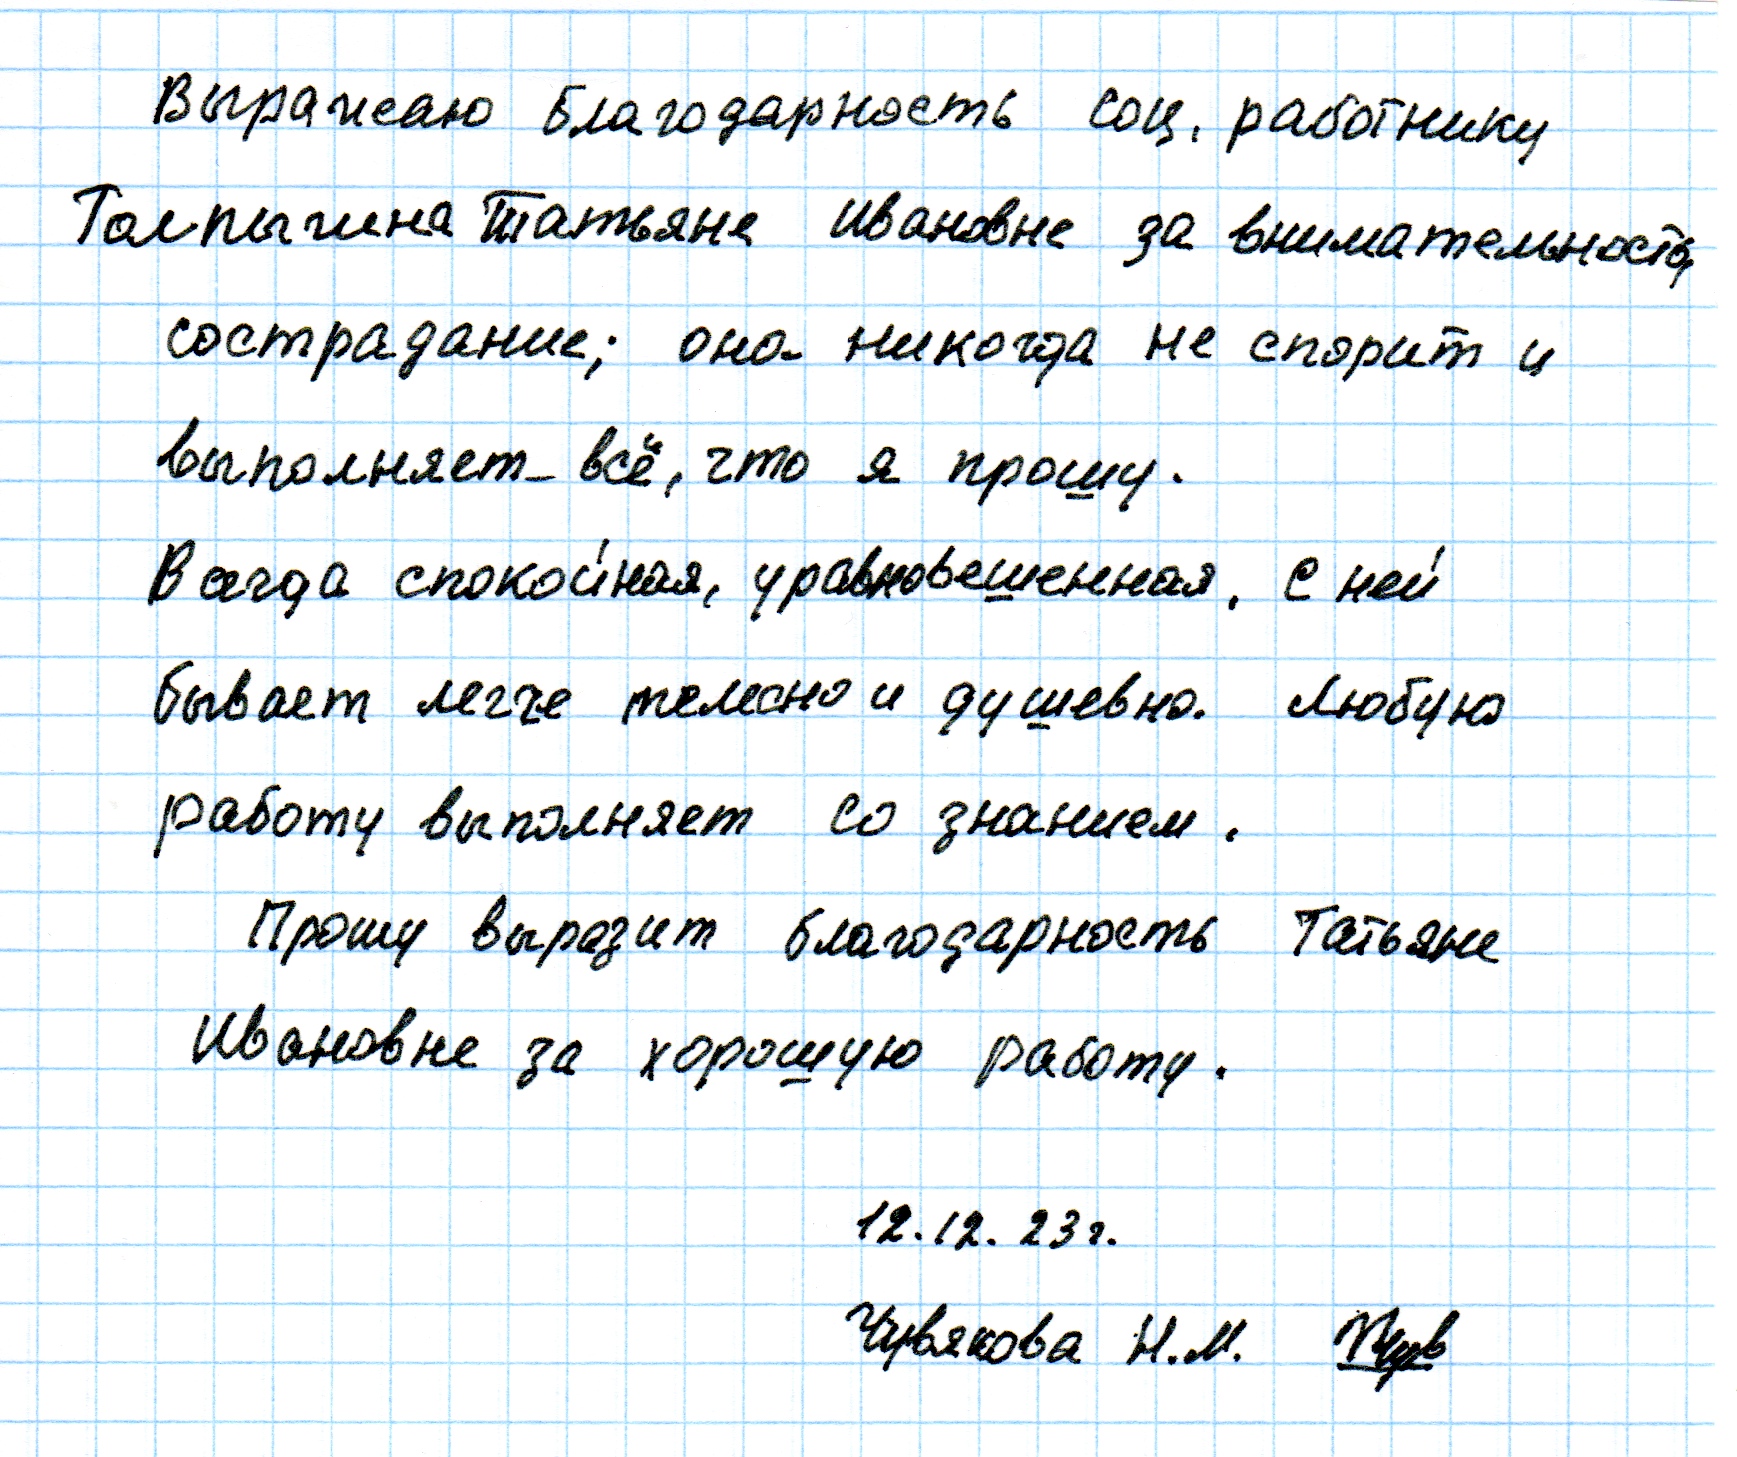 Выражаю благодарность соц. работнику
Толпыгина Татьяне Ивановне за внимательность,
сострадание; она никогда не спорит и
выполняет всё, что я прошу.
Всегда спокойная, уравновешенная. С ней
бывает легче телесно и душевно. Любую
работу выполняет со знанием.
Прошу выразит благодарность Татьяне
Ивановне за хорошую работу.
12.12.23г.
Чувякова Н.М.